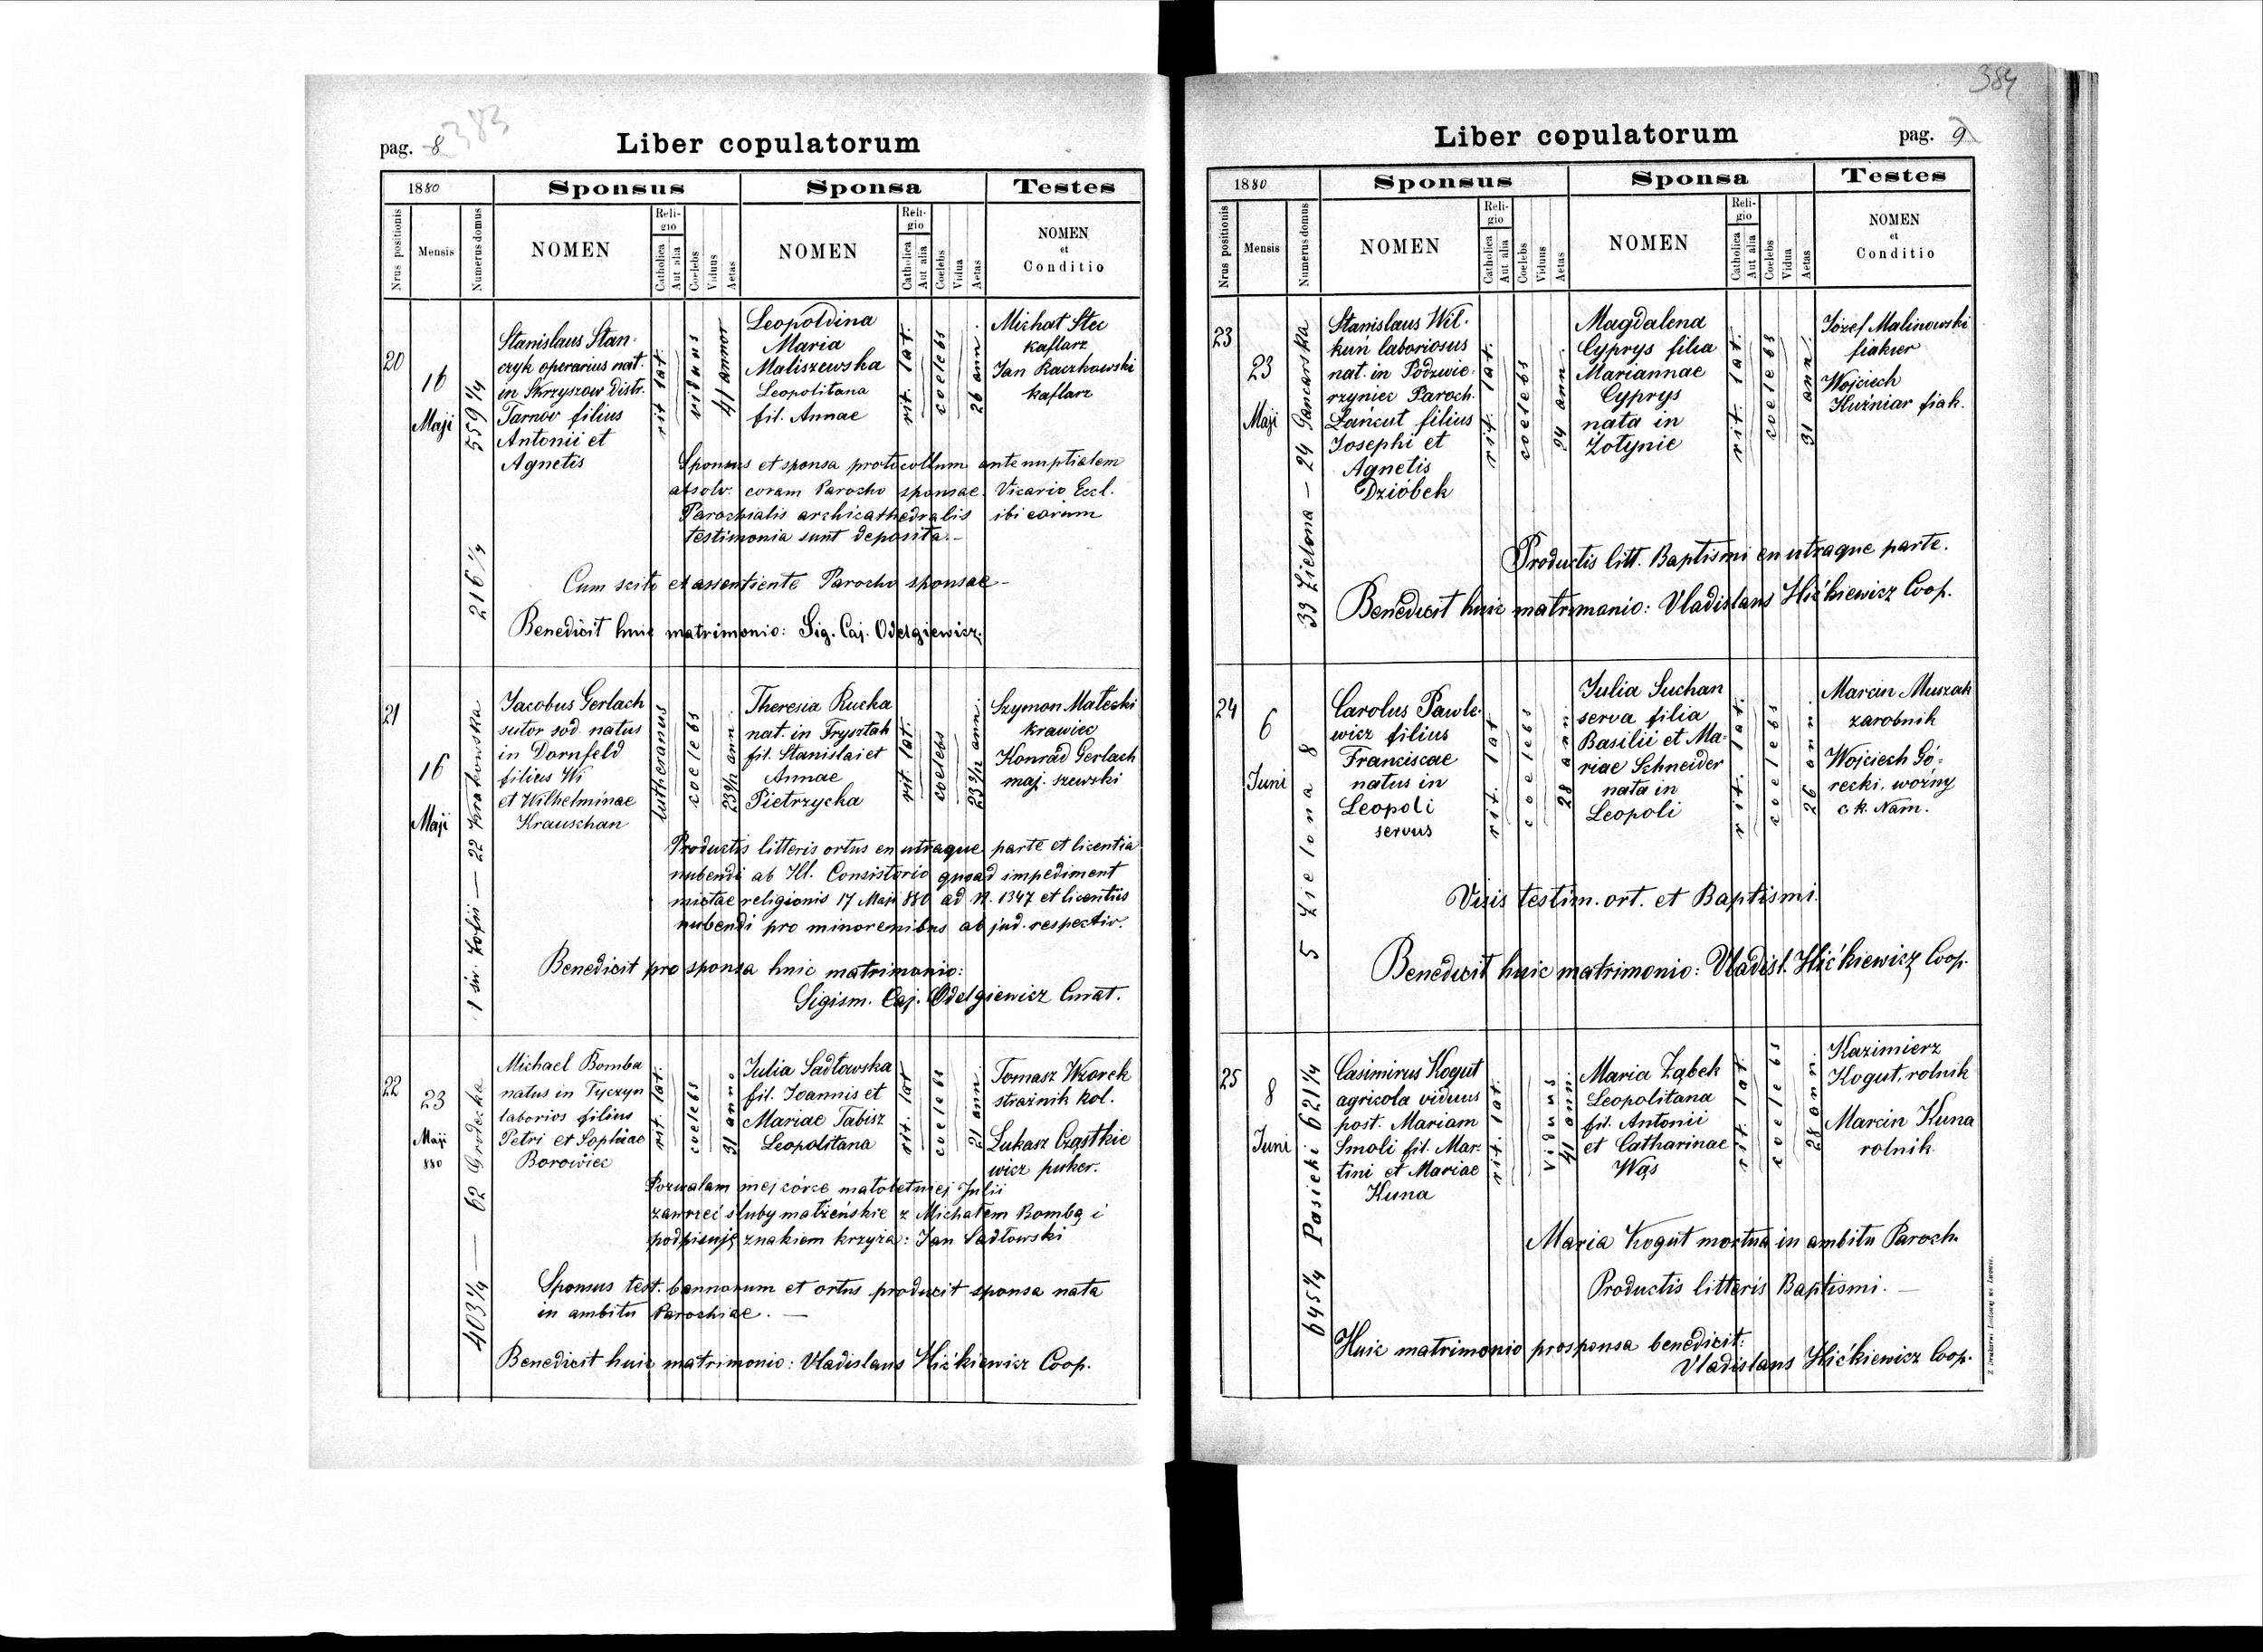 pag. 8
383
Liber copulatorum
1880
Sponsus
Sponsa
Testes
Nrus positionis
Mensis
Numerus domus
NOMEN
Religio
Catholica
Aut alia
Coelebs
Viduus
Aetas
NOMEN
Religio
Catholica
Aut alia
Coelebs
Vidua
Aetas
NOMEN
et
Conditio
20
16
Maji
559 1/4
216 1/4
Stanislaus Stan-
czyk operarius nat.
in Skrzyszow distr.
Tarnov filius
Antonii et
Agnetis
rit. lat.
viduus
41 annor
Leopoldina
Maria
Maliszewska
Leopolitana
fil. Annae
rit. lat.
coelebs
26 ann.
Michał Stec
kaflarz
Jan Raczkowski
kaflarz
Sponsus et sponsa protocollum antenuptialem
absolv. coram Parocho sponsae. Vicario Eccl.
Parochialis archicathedralis ibi eorum
testimonia sunt deposita.-
Cum scitu et assentiente Parocho sponsae-
Benedicit huic matrimonio: Sig. Caj. Odelgiewicz.
21
16
Maji
1 św. Zofii — 22 Krakowska
Jacobus Gerlach
sutor sod natus
in Dornfeld
filius Wi
et Wilhelminae
Krauschan
lutheranus
coelebs
23 9/12 ann.
Theresia Rucka
nat. in Frysztak
fil. Stanislai et
Annae
Pietrzycka
rit. lat.
coelebs
23 3/12 ann.
Szymon Małecki
krawiec
Konrad Gerlach
maj. szewski
Productis litteris ortus en utraque parte et licentia
nubendi ab Ill. Consistorio quoad impediment
mixtae religionis 17 Maji 880 ad N. 1347 et licentiis
nubendi pro minorenibus ab jud. respectiv.
Benedicit pro sponsa huic matrimonio:
Sigism. Caj. Odelgiewicz Curat.
22
23
Maji
880
403 1/4 — 62 Grodecka
Michael Bomba
natus in Tyczyn
laborios filius
Petri et Sophiae
Borowiec
rit. lat.
coelebs
31 anno
Julia Sadłowska
fil. Joannis et
Mariae Tabisz
Leopolitana
rit. lat
coelebs
21 ann.
Tomasz Wzorek
strażnik kol.
Łukasz Cząstkie
wicz puker.
Pozwalam mej córce małoletniej Julii
zawrzeć śluby małżeńskie z Michałem Bombą i
podpisuję znakiem krzyża: Jan Sadłowski
Sponsus test. bannorum et ortus producit sponsa nata
in ambitu Parochiae. —
Benedicit huic matrimonio: Vladislaus Hićkiewicz Coop.
384
Liber copulatorum
pag. 9
1880
Sponsus
Sponsa
Testes
Nrus positionis
Mensis
Numerus domus
NOMEN
Religio
Catholica
Aut alia
Coelebs
Viduus
Aetas
NOMEN
Religio
Catholica
Aut alia
Coelebs
Vidua
Aetas
NOMEN
et
Conditio
23
23
Maji
33 Zielona — 24 Gancarska
Stanislaus Wil-
kuń laboriosus
nat. in Podzwie-
rzyniec Paroch.
Łańcut filius
Josephi et
Agnetis
Dzióbek
rit. lat.
coelebs
24 ann.
Magdalena
Cyprys filia
Mariannae
Cyprys
nata in
Żołynie
rit. lat.
coelebs
31 ann.
Józef Malinowski
fiakier
Wojciech
Kuźniar fiak.
Productis litt. Baptismi en utraque parte.
Benedicit huic matrimonio: Vladislaus Hićkiewicz Coop.
24
6
Juni
5 Zielona 8
Carolus Pawle-
wicz filius
Franciscae
natus in
Leopoli
servus
rit. lat
coelebs
28 ann.
Julia Suchan
serva filia
Basilii et Ma-
riae Schneider
nata in
Leopoli
rit. lat.
coelebs
26 ann.
Marcin Muszak
zarobnik
Wojciech Gó-
recki, woźny
c k. Nam.
Visis testim. ort. et Baptismi.
Benedicit huic matrimonio: Vladisl. Hićkiewicz Coop.
25
8
Juni
645 1/4 Pasieki 621 1/4
Casimirus Kogut
agricola viduus
post. Mariam
Smoli fil. Mar-
tini et Mariae
Kuna
rit. lat.
viduus
41 ann.
Maria Ząbek
Leopolitana
fil. Antonii
et Catharinae
Wąs
rit. lat.
coelebs
28 ann.
Kazimierz
Kogut, rolnik
Marcin Kuna
rolnik.
Maria Kogut mortua in ambitu Paroch.
Productis litteris Baptismi. —
Huic matrimonio pro sponsa benedicit:
Vladislaus Hićkiewicz Coop.
Z Drukarni Ludowej we Lwowie.